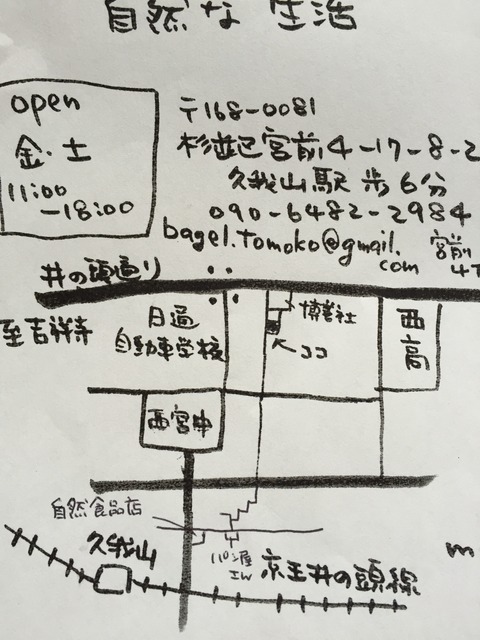 自然な生活
open
金・土
11:00
-18:00
〒168-0081
杉並区宮前4-17-8-2
久我山駅 歩6分
090-6482-2984
bagel.tomoko@gmail.
com
宮前
4丁
井の頭通り
至吉祥寺
日通
自動車学校
ココ
西高
西宮中
自然食品店
久我山
パン屋
京王井の頭線
m